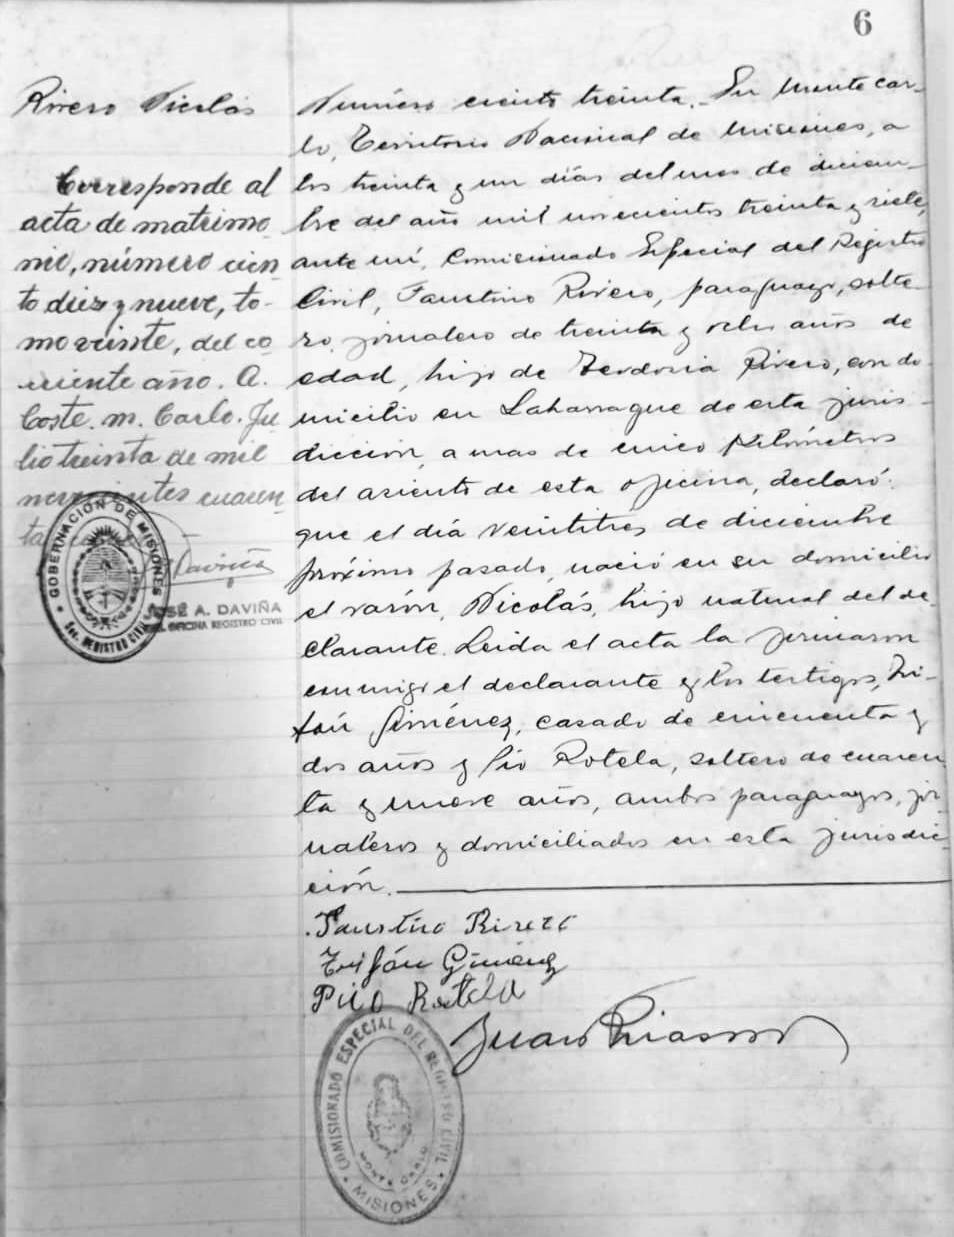 6
Rivero Nicolás
Corresponde al
acta de matrimo
nio, número cien
to diez y nueve, to-
mo veinte, del co
rriente año. A.
Coste. M. Carlo. Ju
lio treinta de mil
novecientos cuaren
ta
Daviña
GOBERNACIÓN DE MISIONES
REGISTRO CIVIL
JOSÉ A. DAVIÑA
OFICINA REGISTRO CIVIL
Número ciento treinta.- En Monte car-
lo, Territorio Nacional de Misiones, a
los treinta y un días del mes de diciem-
bre del año mil novecientos treinta y siete,
ante mí, Comisionado Especial del Registro
Civil, Faustino Rivero, paraguayo, solte-
ro, jornalero de treinta y ocho años de
edad, hijo de Teodoria Rivero, con do-
micilio en Laharrague de esta juris-
dicción, a mas de cinco kilómetros
del asiento de esta oficina, declaró:
que el día veintitres de diciembre
próximo pasado, nació en su domicilio
el varón, Nicolás, hijo natural del de-
clarante. Leida el acta la firmaron
conmigo el declarante y los testigos, Tri-
fón Giménez, casado de cincuenta y
dos años y Pio Rotela, soltero de cuaren
ta y nueve años, ambos paraguayos, jor
naleros y domiciliados en esta jurisdic-
ción.
Faustino Rivero
Trifón Giménez
Pio Rotela
Juan
COMISIONADO ESPECIAL DEL REGISTRO CIVIL
MONTE CARLO
MISIONES